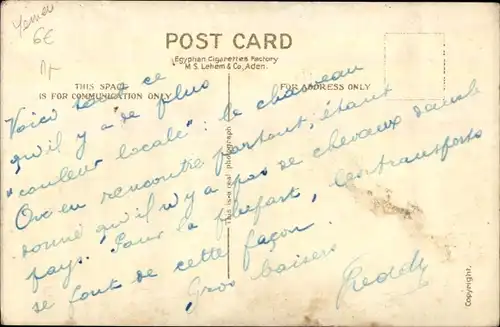 Yemen
6€
POST CARD
Egyphan Cigarettes Factory
M.S. Lehem & Co, Aden.
THIS SPACE
IS FOR COMMUNICATION ONLY
FOR ADDRESS ONLY
This is a real photograph
Copyright.
Voici tout ce
qu'il y a de plus
"couleur locale": le chameau
On en rencontre partout, étant
donné qu'il n'y a pas de chevaux dans le
pays. Pour la plupart, les transports
se font de cette façon.
Gros baisers
Freddy